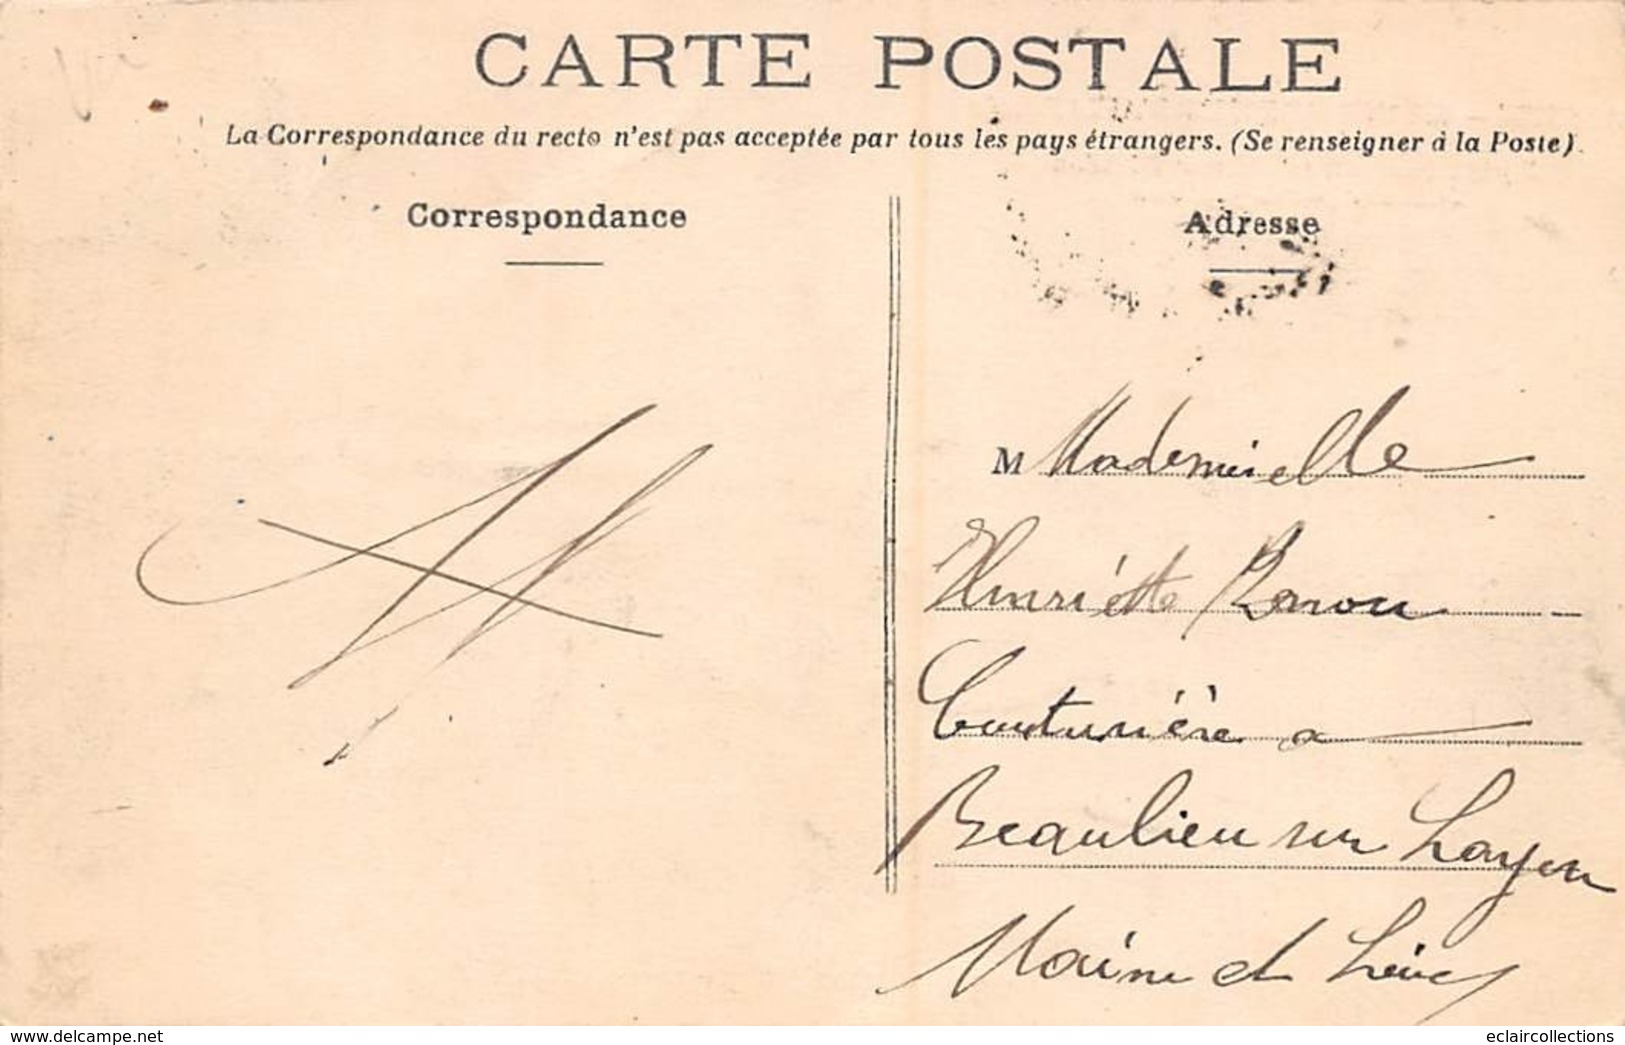 CARTE POSTALE
La Correspondance du recto n'est pas acceptée par tous les pays étrangers. (Se renseigner à la Poste)
Correspondance
Adresse
M Mademoiselle
Henriette
Couturière a
Beaulieu sur Layon
Maine et Loire
eclaircollections